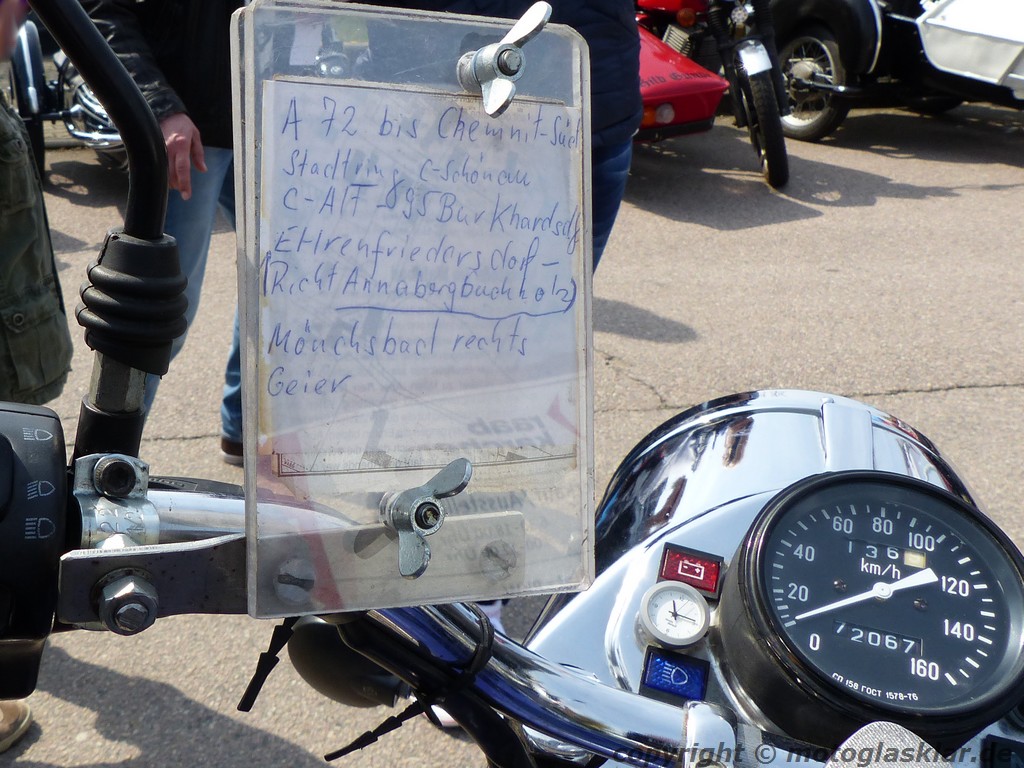 A 72 bis Chemnit-Süd
Stadtring C-Schönau
C-Alt
Burkhardsdf
EHrenfriedersdorf-
(Richt Annabergbuchholz)
Mönchsbad rechts
Geier
raab
0
20
40
60
80
100
120
140
160
136
km/h
72067
СП 158 ГОСТ 1578-76
copyright © motoglasklar.de